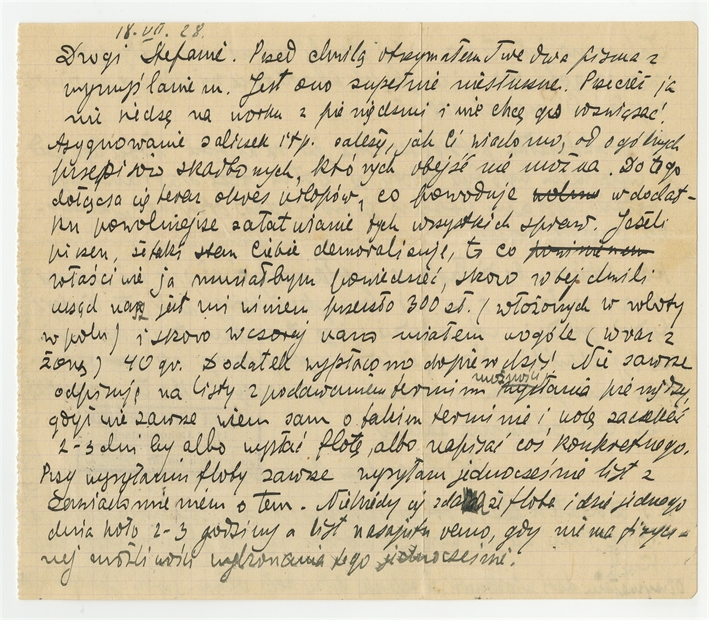 18.VII.28.
Drogi Stefanie. Przed chwilą otrzymałem Twe dwa pisma z
wymyślaniem. Jest ono zupełnie niesłuszne. Przecież ja
nie siedzę na worku z pieniędzmi i nie chcę go rozwiązać.
Asygnowanie zaliczek itp. zależy, jak Ci wiadomo, od ogólnych
przepisów skarbowych, których obejść nie można. Do tego
dołącza się teraz okres urlopów, co powoduje w dodat-
ku powolniejsze załatwianie tych wszystkich spraw. Jeżeli
piszesz, że taki stan Ciebie demoralizuje, to co
właściwie ja musiałbym powiedzieć, skoro w tej chwili
urząd nasz jest mi winien przeszło 300 zł. (włożonych w roboty
w polu) i skoro wczoraj rano miałem wogóle (wraz z
żoną) 40 gr. Dodatek wypłacono dopiero dziś! Nie zawsze
odpisuję na listy z podawaniem terminu możności wysłania pieniędzy,
gdyż nie zawsze wiem sam o takim terminie i wolę zaczekać
2-3 dni by albo wysłać flotę, albo napisać coś konkretnego.
Przy wysyłaniu floty zawsze wysyłam jednocześnie list z
zawiadomieniem o tem. Niekiedy się zdarza że flota idzie jednego
dnia koło 2-3 godziny a list nazajutrz rano, gdy nie ma fizycz-
nej możliwości wykonania tego jednocześnie.